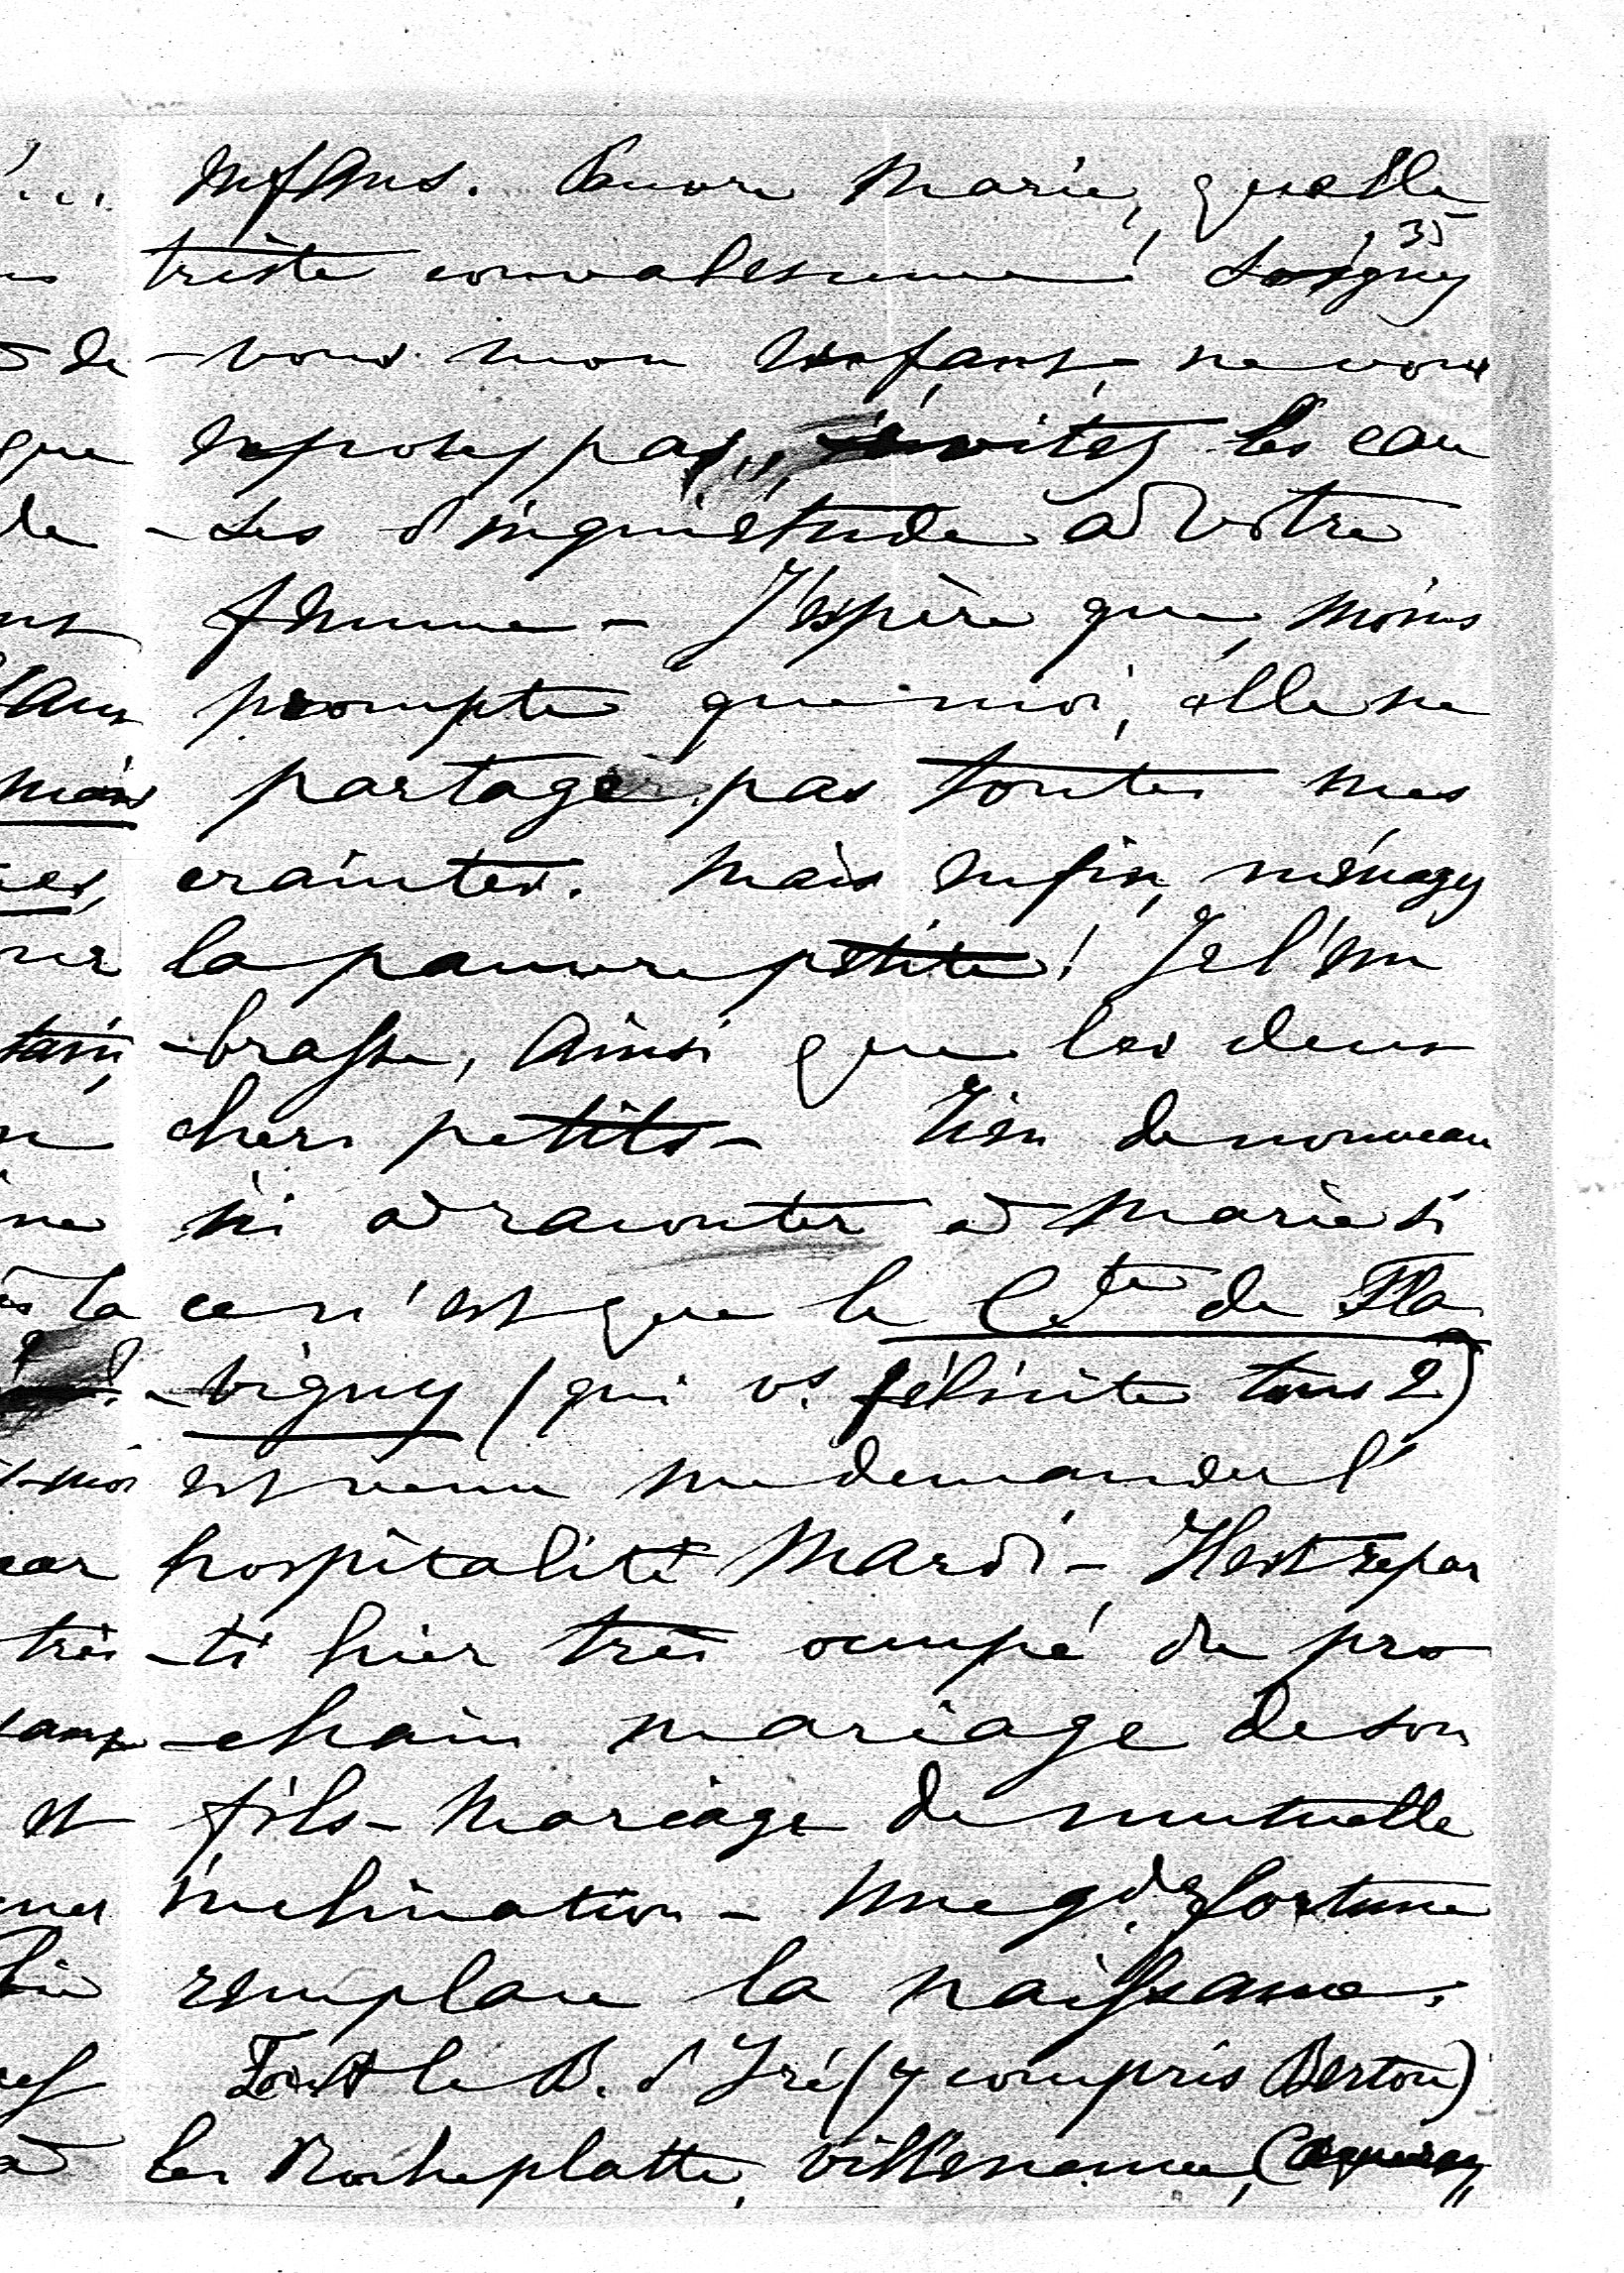 enfans. Pauvre Marie, quelle
35
triste convalescence! Soignez
-vous mon enfant, ne vous
exposez pas, évitez les cau
-ses d'inquiétude à votre
femme - J'espère que, moins
prompte que moi, elle ne
partage pas toutes mes
craintes. Mais enfin, ménagez
la pauvre petite! Je l'em
-brasse, ainsi que les deux
chers petits - Rien de nouveau
ici à raconter à Marie si
ce n'est que le Cte de Fla
-vigny (qui vs félicite tous 2)
est venu me demander l'
hospitalité Mardi - Il est repar
-ti hier très occupé du pro
-chain mariage de son
fils - Mariage de mutuelle
inclination - une gde fortune
remplace la naissance.
Tout le B. d'Iré (y compris Berton)
les Rocheplatte, Villeneuve,